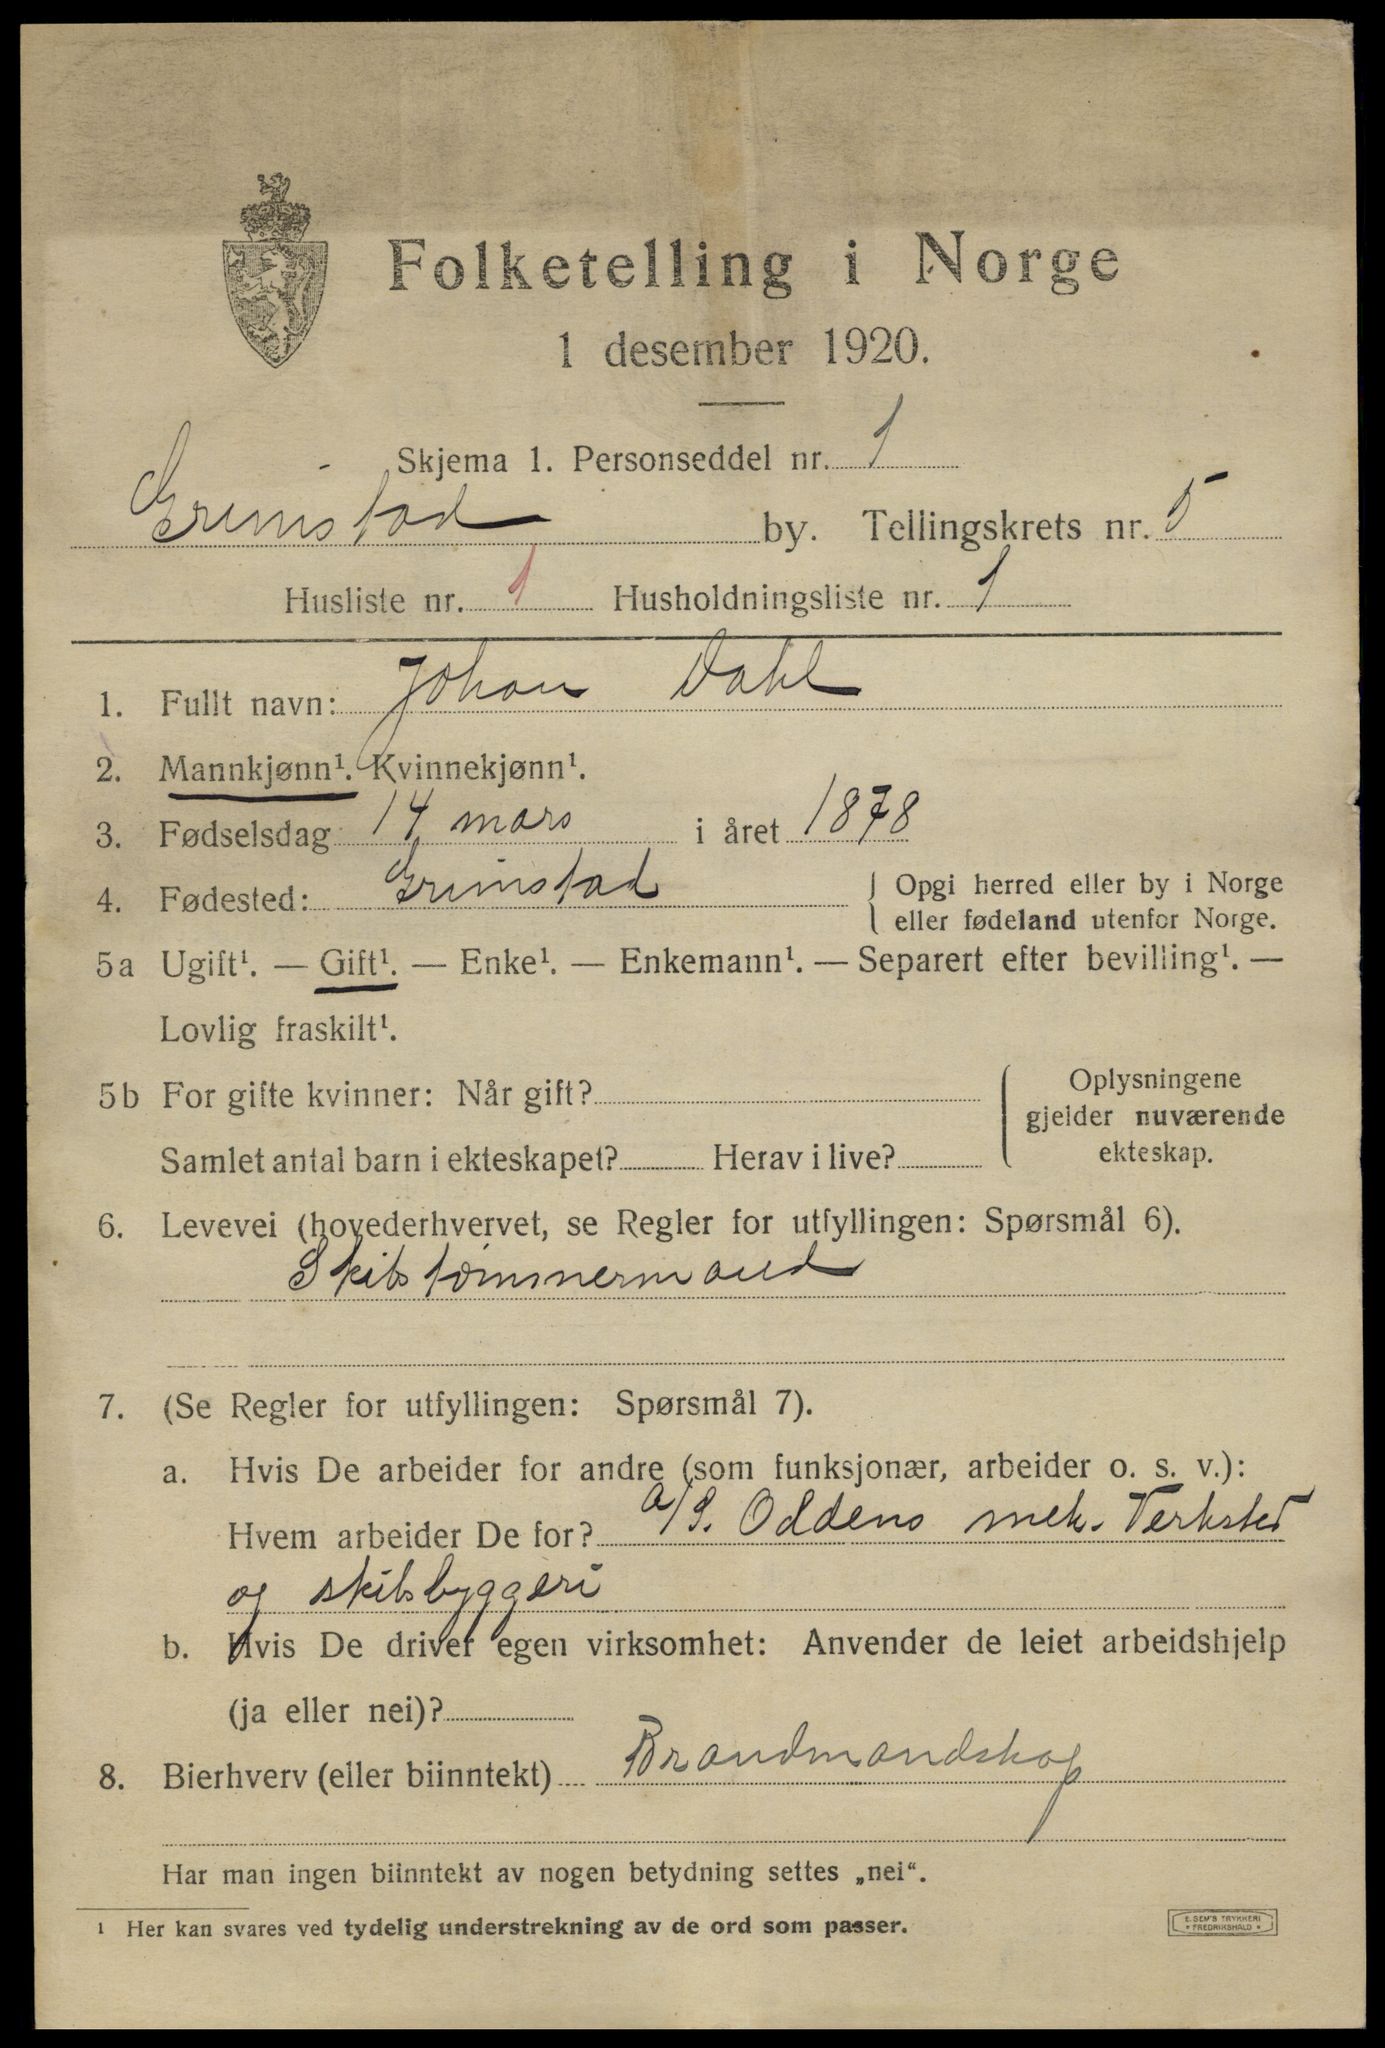 Folketelling i Norge
1 desember 1920.
Skjema 1. Personseddel nr. 1
Grimstad by. Tellingskrets nr. 5
Husliste nr. 1 Husholdningsliste nr. 1
1. Fullt navn: Johan Dahl
2. Mannkjønn¹. Kvinnekjønn¹.
3. Fødselsdag 14 mars i året 1878
4. Fødested: Grimstad { Opgi herred eller by i Norge
eller fødeland utenfor Norge.
5a Ugift¹. — Gift¹. — Enke¹. — Enkemann¹. — Separert efter bevilling¹. —
Lovlig fraskilt¹.
5b For gifte kvinner: Når gift?
Samlet antal barn i ekteskapet? Herav i live?
Oplysningene
gjelder nuværende
ekteskap.
6. Levevei (hovederhvervet, se Regler for utfyllingen: Spørsmål 6).
Skibstømmermand
7. (Se Regler for utfyllingen: Spørsmål 7).
a. Hvis De arbeider for andre (som funksjonær, arbeider o. s. v.):
Hvem arbeider De for? A/S. Oddens mek. Verksted
og skibsbyggeri
b. Hvis De driver egen virksomhet: Anvender de leiet arbeidshjelp
(ja eller nei)?
8. Bierhverv (eller biinntekt) Brandmandskap
Har man ingen biinntekt av nogen betydning settes „nei“.
¹ Her kan svares ved tydelig understrekning av de ord som passer.
E. SEM'S TRYKKERI
* FREDRIKSHALD *